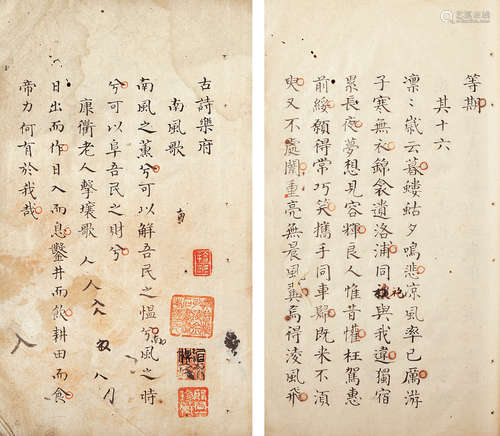 等期
其十六
凛〻歲云暮螻蛄夕鳴悲凉風率已厲游
子寒無衣錦衾遺洛浦同袍與我違獨宿
累長夜夢想見容輝良人惟昔懽枉駕惠
前綏願得常巧笑攜手同車歸既来不湏
臾又不處闈重亮無晨風翼焉得淩風飛
古詩樂府
南風歌
南風之薰兮可以觧吾民之愠兮風之時
兮可以阜吾民之財兮
康衢老人擊壤歌 人人
日出而作日入而息鑿井而飲耕田而食
帝力何有於我哉